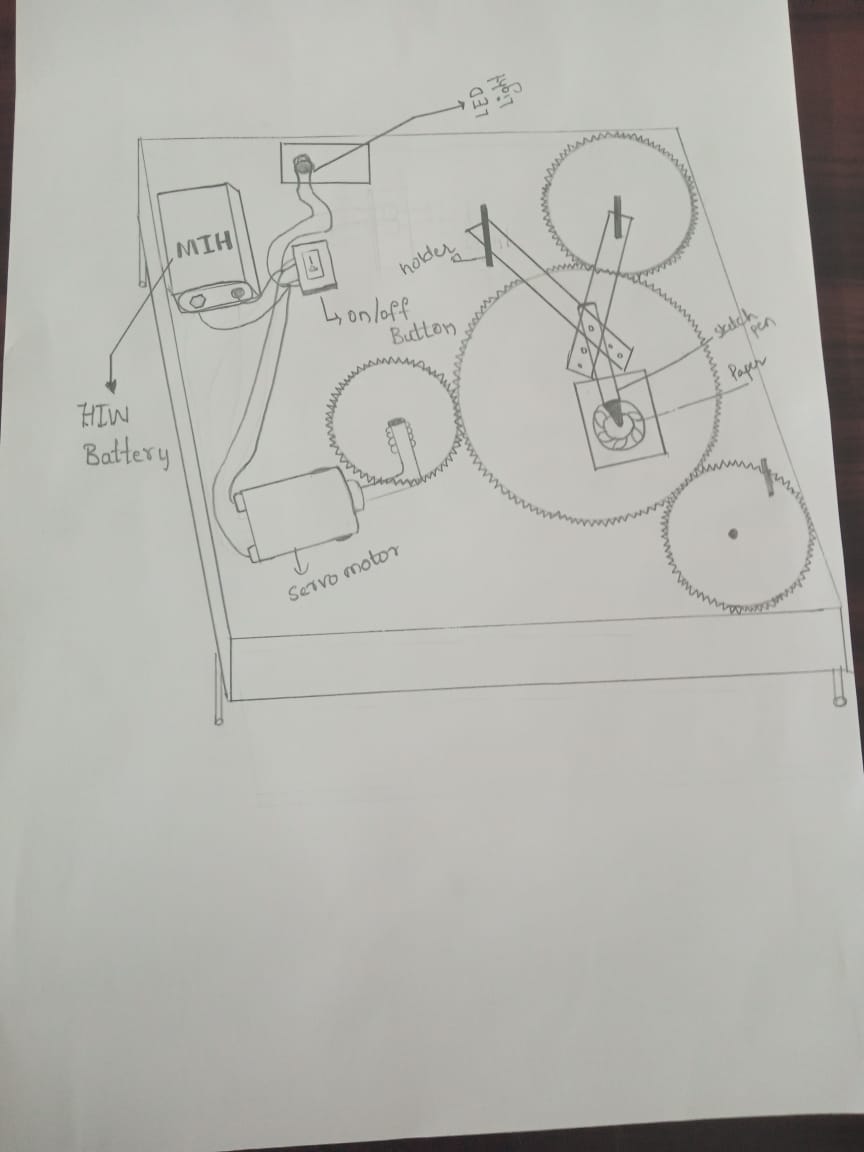 LED
Light
MIH
holder
on/off
Button
sketch
pen
Paper
HIW
Battery
Servo motor